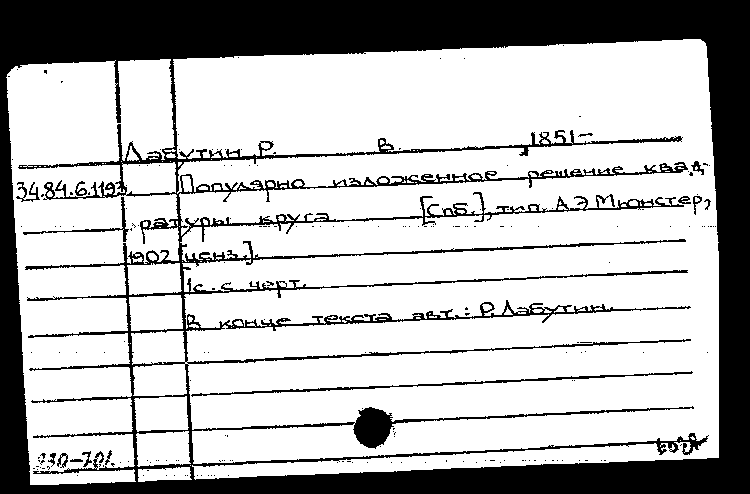 Лабутин, Р. В. , 1851-
34.84.6.1193. Популярно изложенное решение квад-
ратуры круга [Спб.], тип. А.Э Мюнстер,
1902 [ценз.].
1с. с черт.
В конце текста авт.: Р. Лабутин.
230-701.